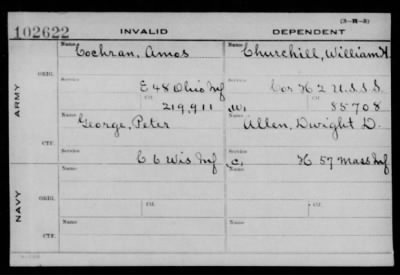 (3-H-3)
102622 INVALID DEPENDENT
Name Cochran, Amos Name Churchill, William H.
ARMY
ORIG.
Service E 48 Ohio Inf Service Cor H 2 U.S.S.S.
Ctf. 219,911 W. Ctf. 85708
Name George, Peter Name Allen, Dwight D.
CTF.
Service C 6 Wis Inf Service C. K 57 Mass Inf
NAVY
Name Name
ORIG.
Service Ctf. Service Ctf.
Name Name
CTF.
Service Service